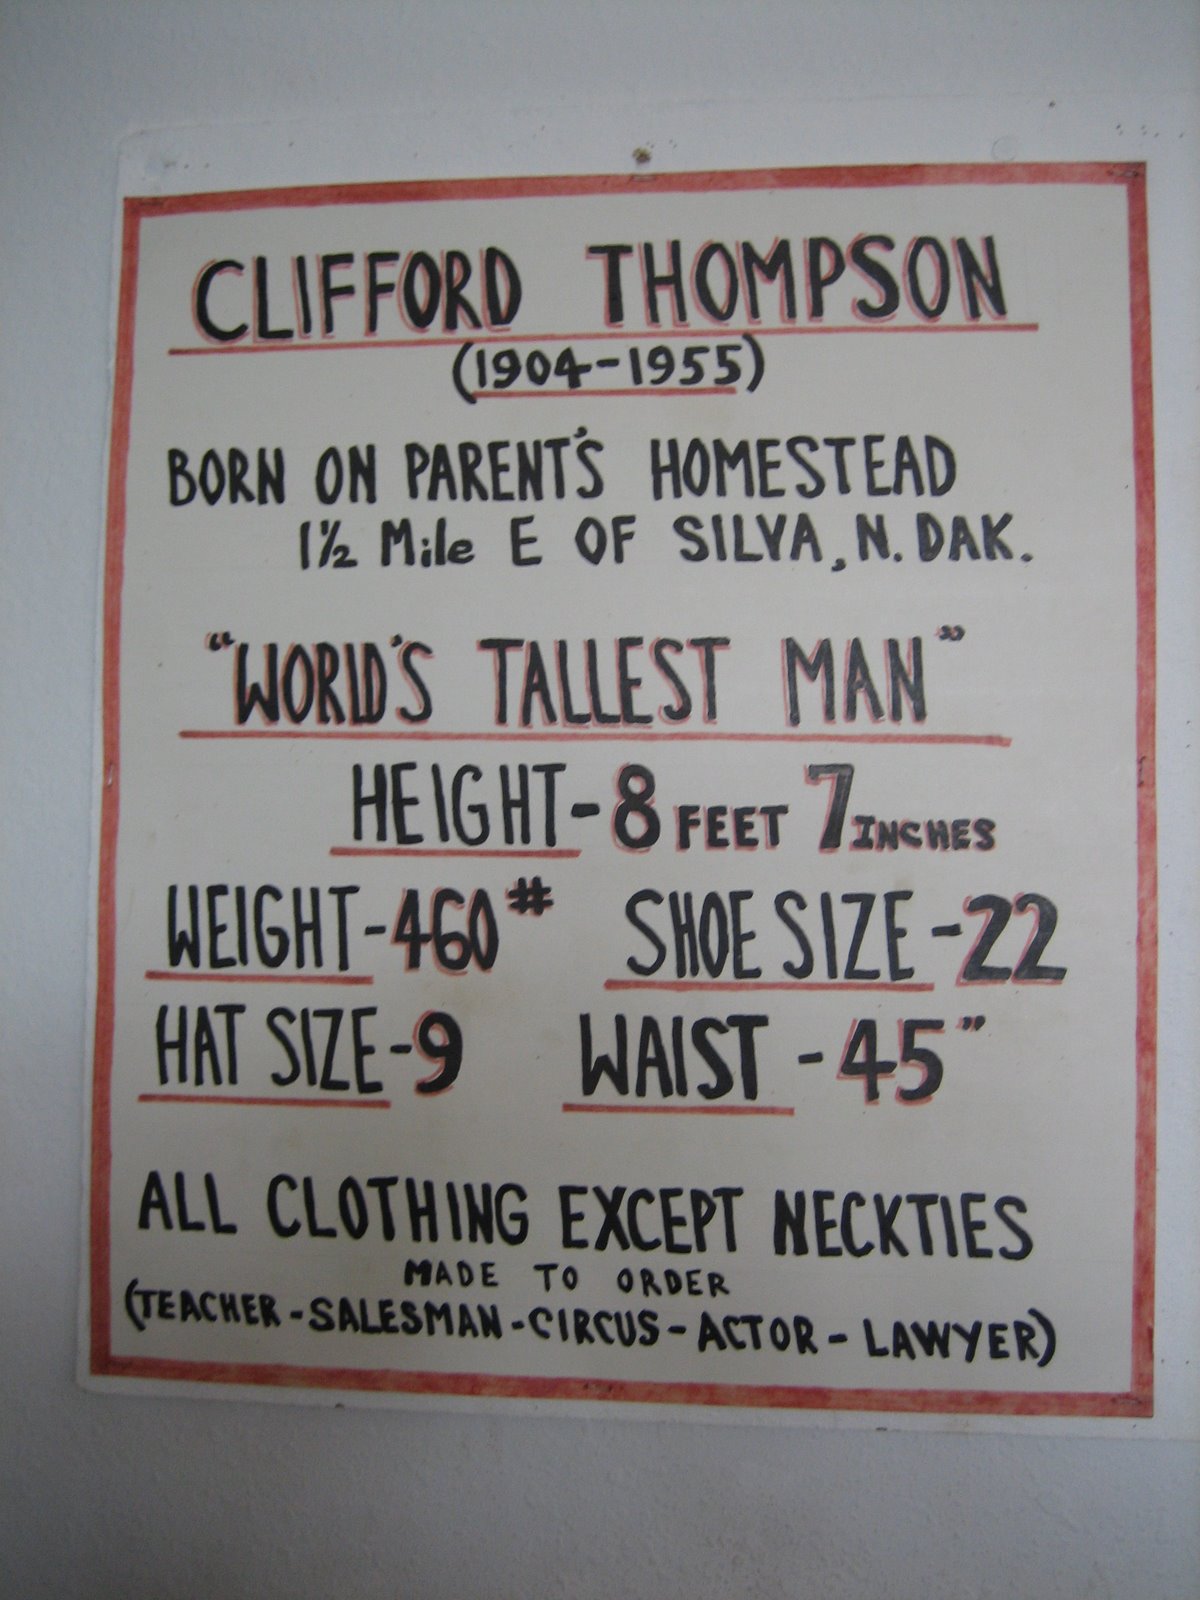 CLIFFORD THOMPSON
(1904-1955)
BORN ON PARENT'S HOMESTEAD
1½ Mile E OF SILVA, N. DAK.
"WORLD'S TALLEST MAN"
HEIGHT-8 FEET 7 INCHES
WEIGHT-460# SHOE SIZE-22
HAT SIZE-9 WAIST-45"
ALL CLOTHING EXCEPT NECKTIES
MADE TO ORDER
(TEACHER-SALESMAN-CIRCUS-ACTOR-LAWYER)